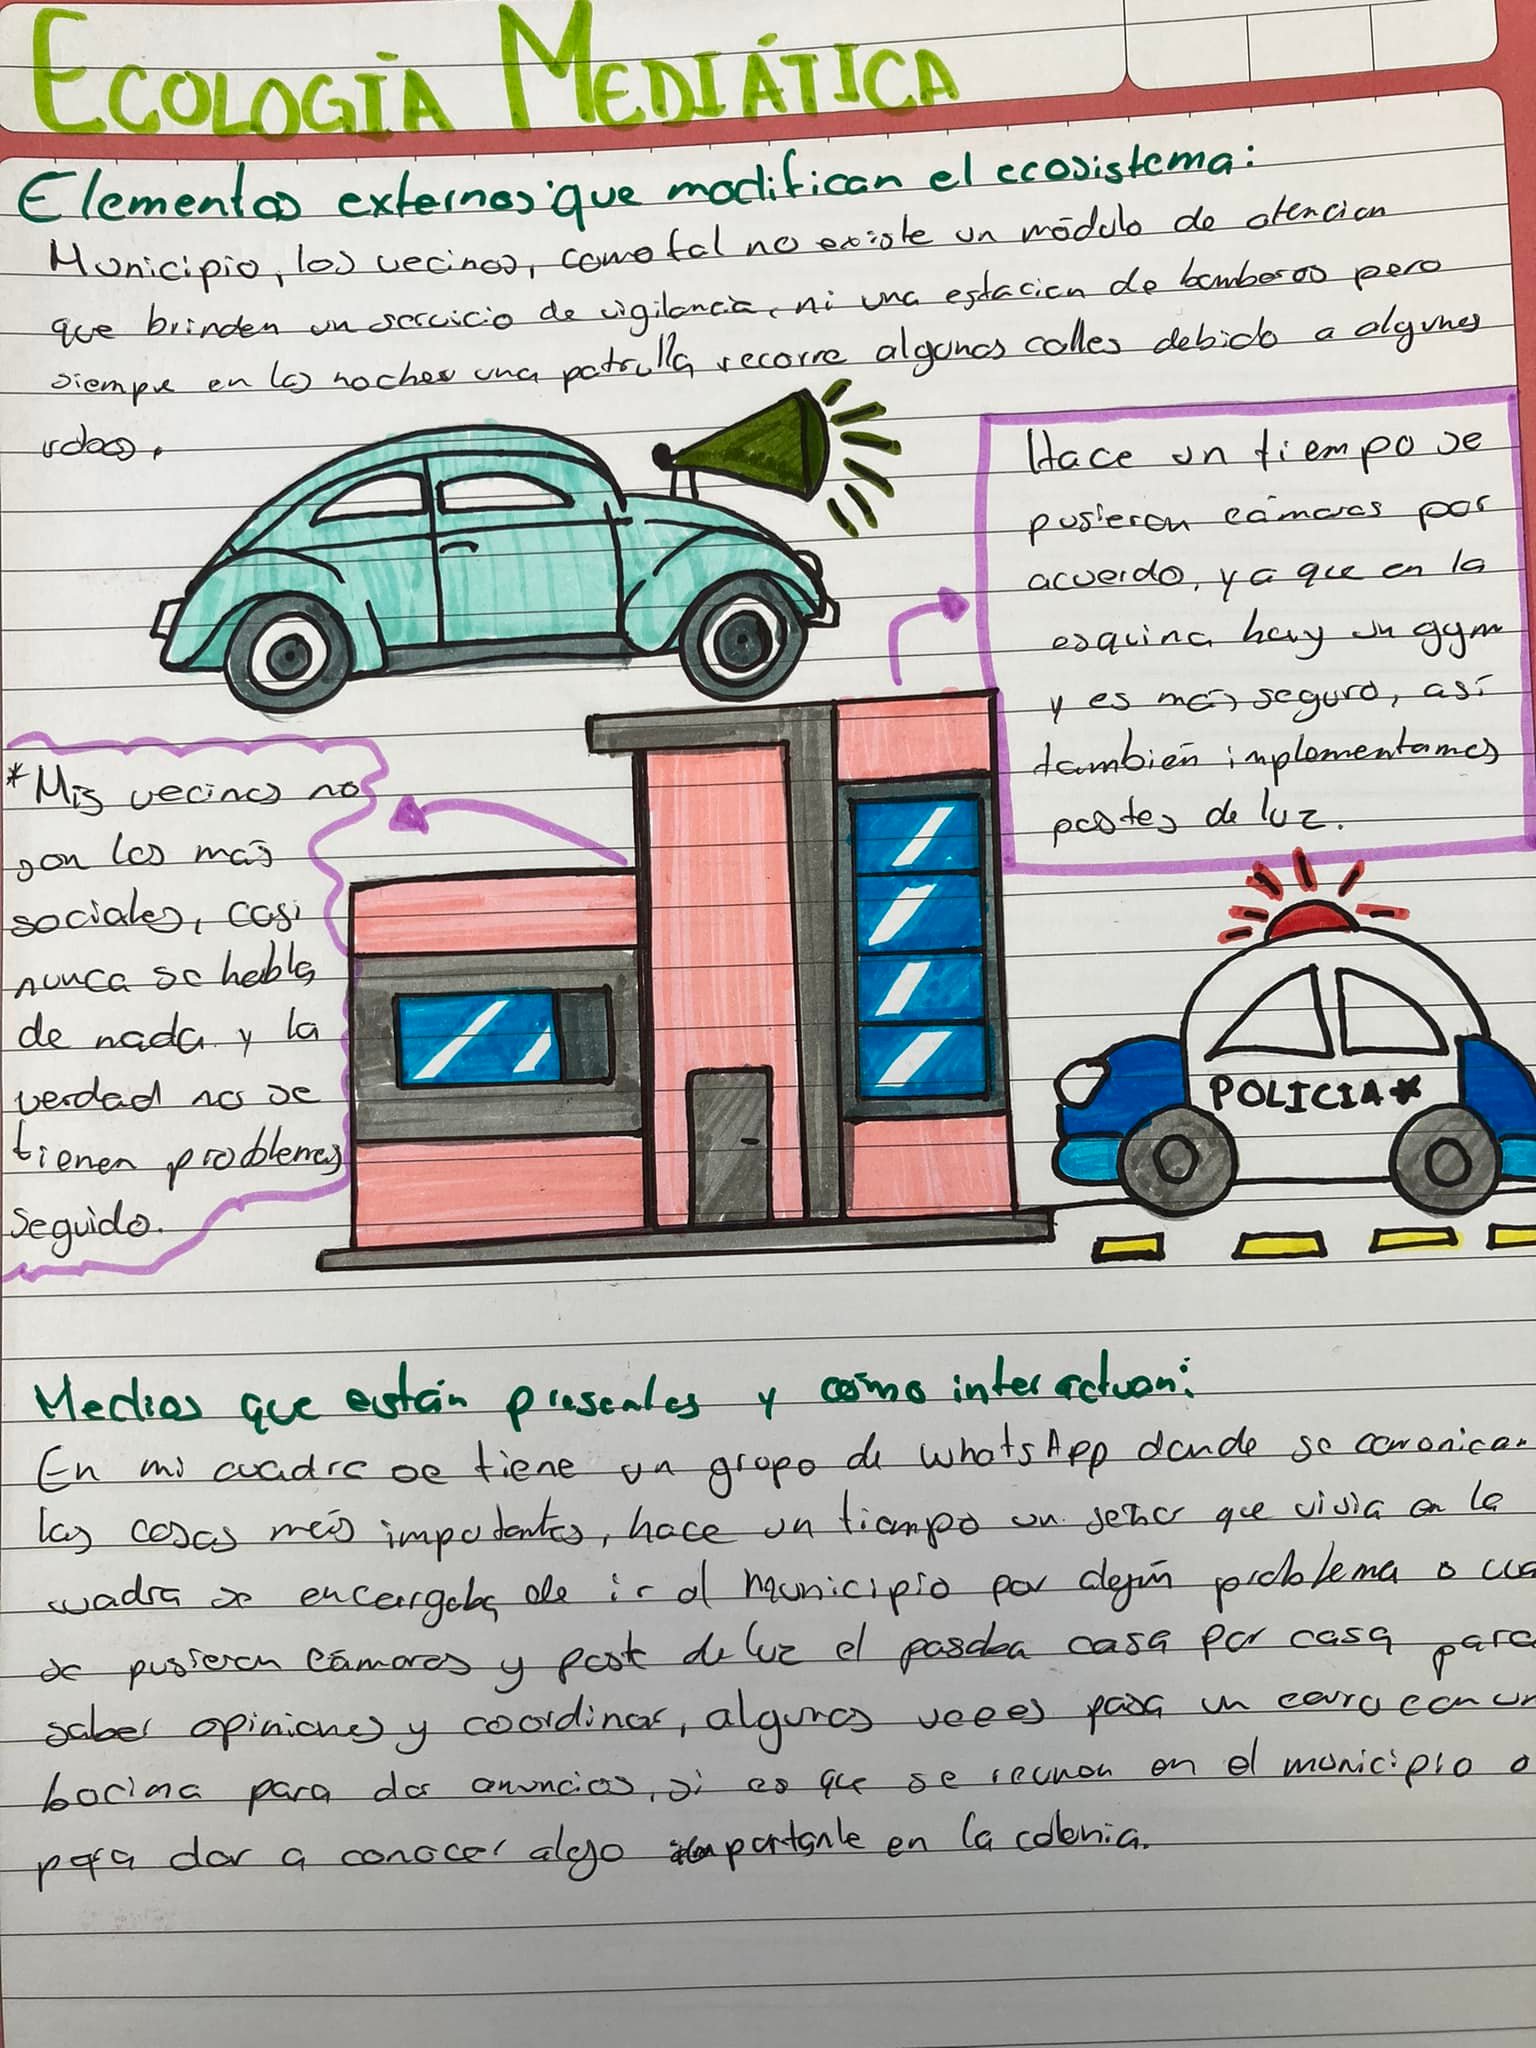 ECOLOGÍA MEDIÁTICA
Elementos externos que modifican el ecosistema:
Municipio, los vecinos, como tal no existe un módulo de atencion
que brinden un servicio de vigilancia, ni una estacion de bomberos pero
siempre en las noches una patrulla recorre algunas calles debido a algunos
robos.
Hace un tiempo se
pusieron cámaras por
acuerdo, ya que en la
esquina hay un gym
y es más seguro, así
también implementamos
postes de luz.
*Mis vecinos no
son los más
sociales, casi
nunca se habla
de nada y la
verdad no se
tienen problemas
seguido.
POLICIA*
Medios que están presentes y cómo interactuan:
En mi cuadra se tiene un grupo de WhatsApp donde se comunican
las cosas más importantes, hace un tiempo un señor que vivia en la
cuadra se encargaba de ir al municipio por algún problema o
se pusieron cámaras y post de luz el pasaba casa por casa para
saber opiniones y coordinar, algunas veces pasa un carro con un
bocina para dar anuncios, si es que se reunen en el municipio o
para dar a conocer algo importante en la colonia.